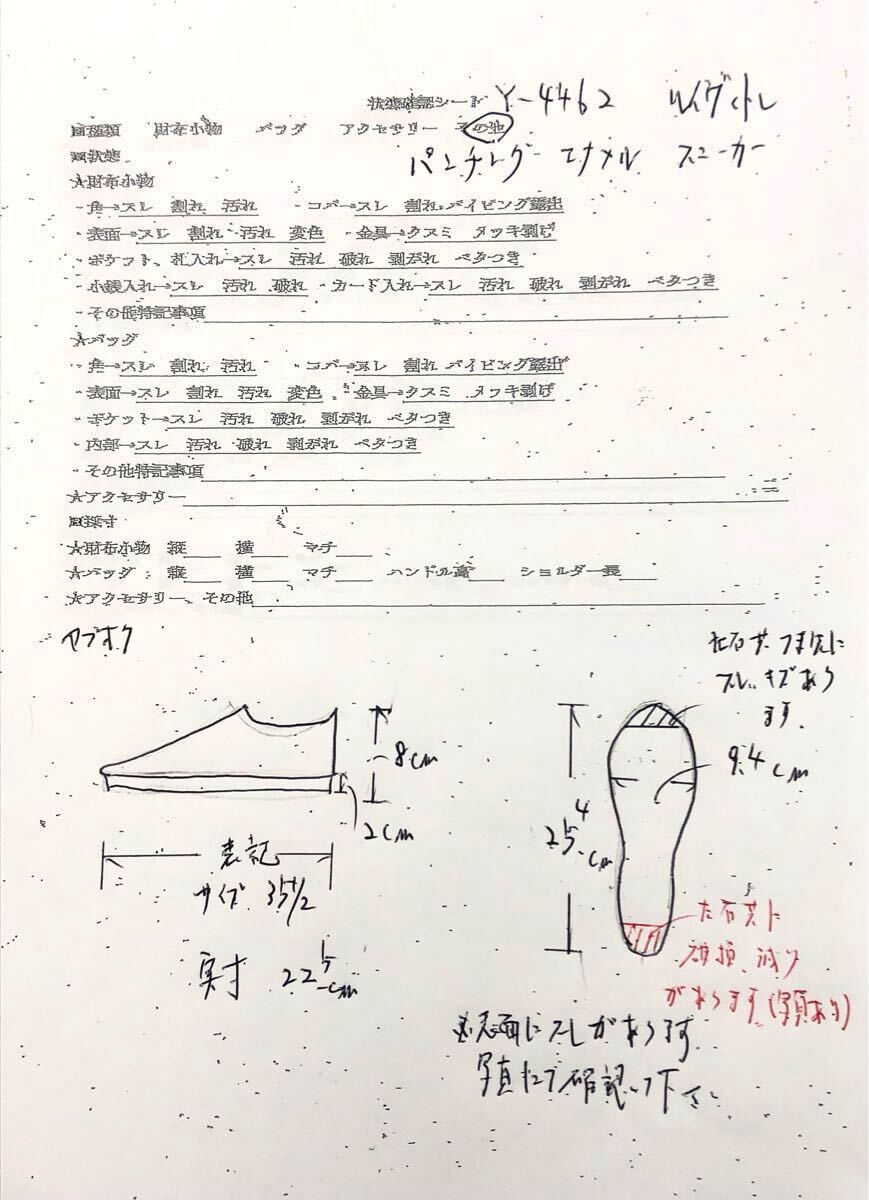 状態確認シート Y-4462 ルイヴィトン
■種類 財布小物 バッグ アクセサリー その他
■状態 パンチレザー エナメル スニーカー
★財布小物
・角→スレ 割れ 汚れ ・コバ→スレ 割れ パイピング露出
・表面→スレ 割れ 汚れ 変色 ・金具→クスミ メッキ剥げ
・ポケット、札入れ→スレ 汚れ 破れ 剥がれ ベタつき
・小銭入れ→スレ 汚れ 破れ ・カード入れ→スレ 汚れ 破れ 剥がれ ベタつき
・その他特記事項
★バッグ
・角→スレ 割れ 汚れ ・コバ→スレ 割れ パイピング露出
・表面→スレ 割れ 汚れ 変色 ・金具→クスミ メッキ剥げ
・ポケット→スレ 汚れ 破れ 剥がれ ベタつき
・内部→スレ 汚れ 破れ 剥がれ ベタつき
・その他特記事項
★アクセサリー
■採寸
★財布小物 縦 横 マチ
★バッグ 縦 横 マチ ハンドル高 ショルダー長
★アクセサリー、その他
ヤフオク
左右共つま先に
スレ、キズあり
ます。
8cm
2cm
9.4cm
25.4cm
表記
サイズ 35 1/2
実寸 22.5cm
左右共に
破損、減り
があります(写真あり)
表面にスレがあります
写真にて確認して下さい